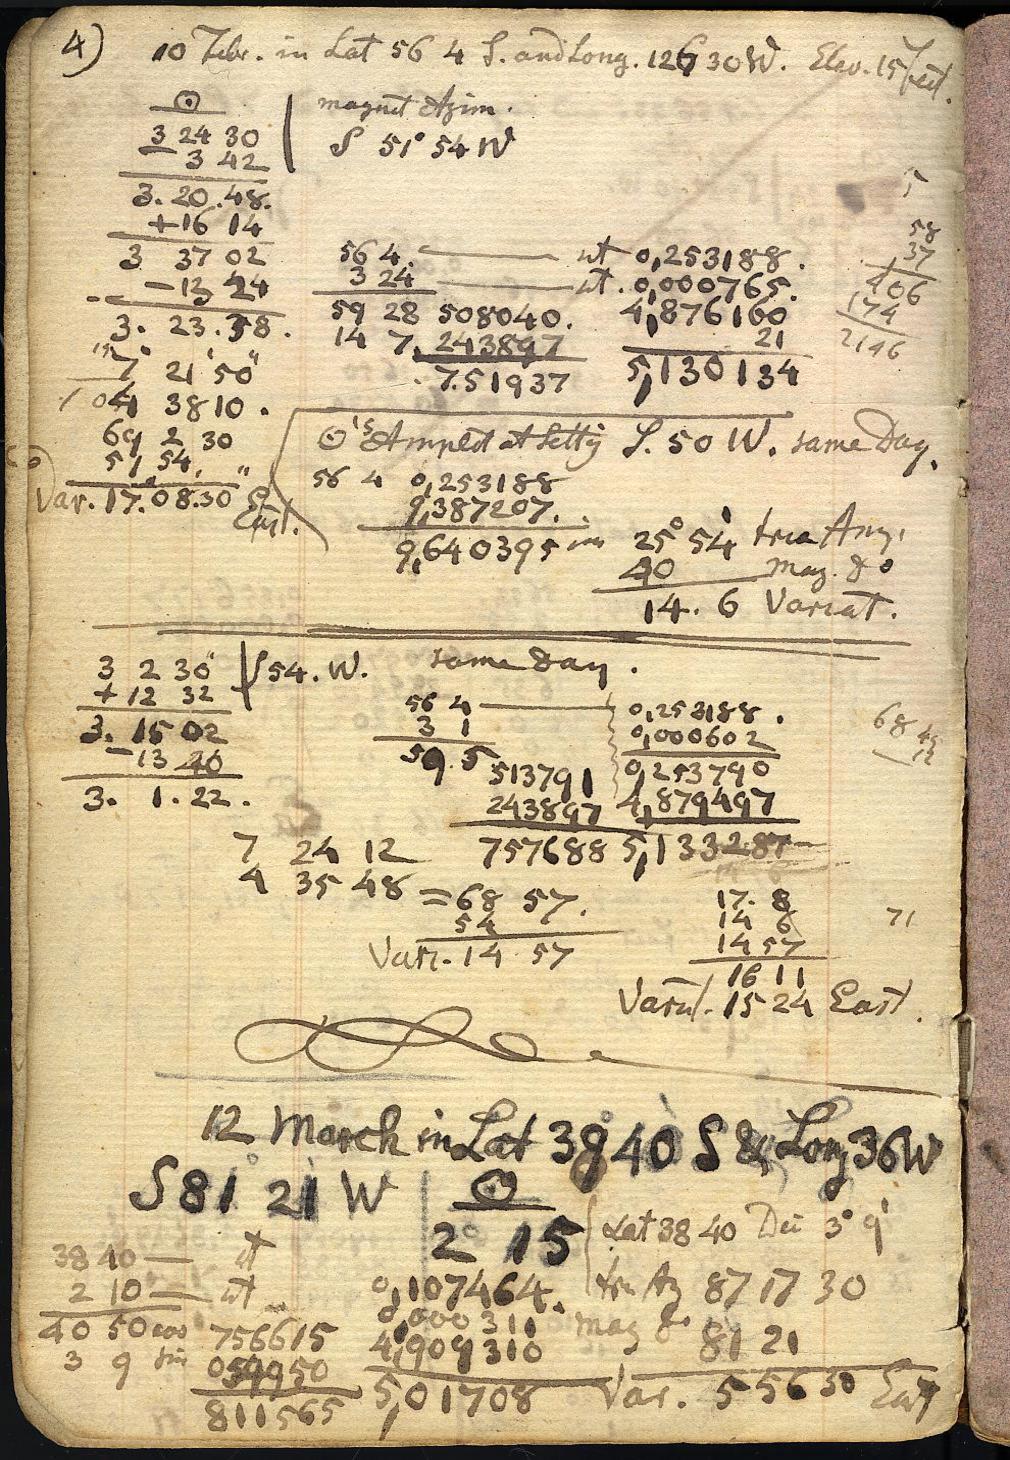 4) 10 Febr. in Lat 56 4 S. and Long. 126 30 W. Elev. 15 feet.
☉
3 24 30
3 42
3. 20. 48.
+16 14
3 37 02
-13 24
3. 23. 38.
7 21 50
4 38 10.
69 2 30
51 54.
Var. 17. 08. 30 East.
magnet Azim.
S 51° 54 W
56 4. — ut 0,253188.
3 24 — ut. 0,000765.
59 28 508040. 4,876160
14 7. 243897 21
7.51937 5,130134
5
58
37
406
174
2146
☉'s Amplit at Setty S. 50 W. same Day.
56 4 0,253188
9,387207.
9,640395 25° 54' true Am.
40 mag. do
14. 6 Variat.
3 2 30
+ 12 32
3. 15 02
-13 40
3. 1. 22.
S 54. W. same day.
56 4 — 0,253188.
3 1 0,000602
59. 5 0,253790
513791
243897 4,879497
757688 5,133287
68 45
7 24 12
4 35 48 = 68 57.
54
Vari. 14 57
17. 8
14 6
14 57
16 11
Variat. 15 24 East.
71
12 March in Lat 39 40 S & Long 36 W
S 81° 21 W
☉
2° 15
38 40 — ut
2 10 — ut
40 50 cos 756615
3 9 sin 054950
811565
0,107464.
0,000311
4,909310
5,01708
Lat 38 40 Dec 3° 9'
tru Az 87 17 30
mag do 81 21
Var. 5 56 30 East